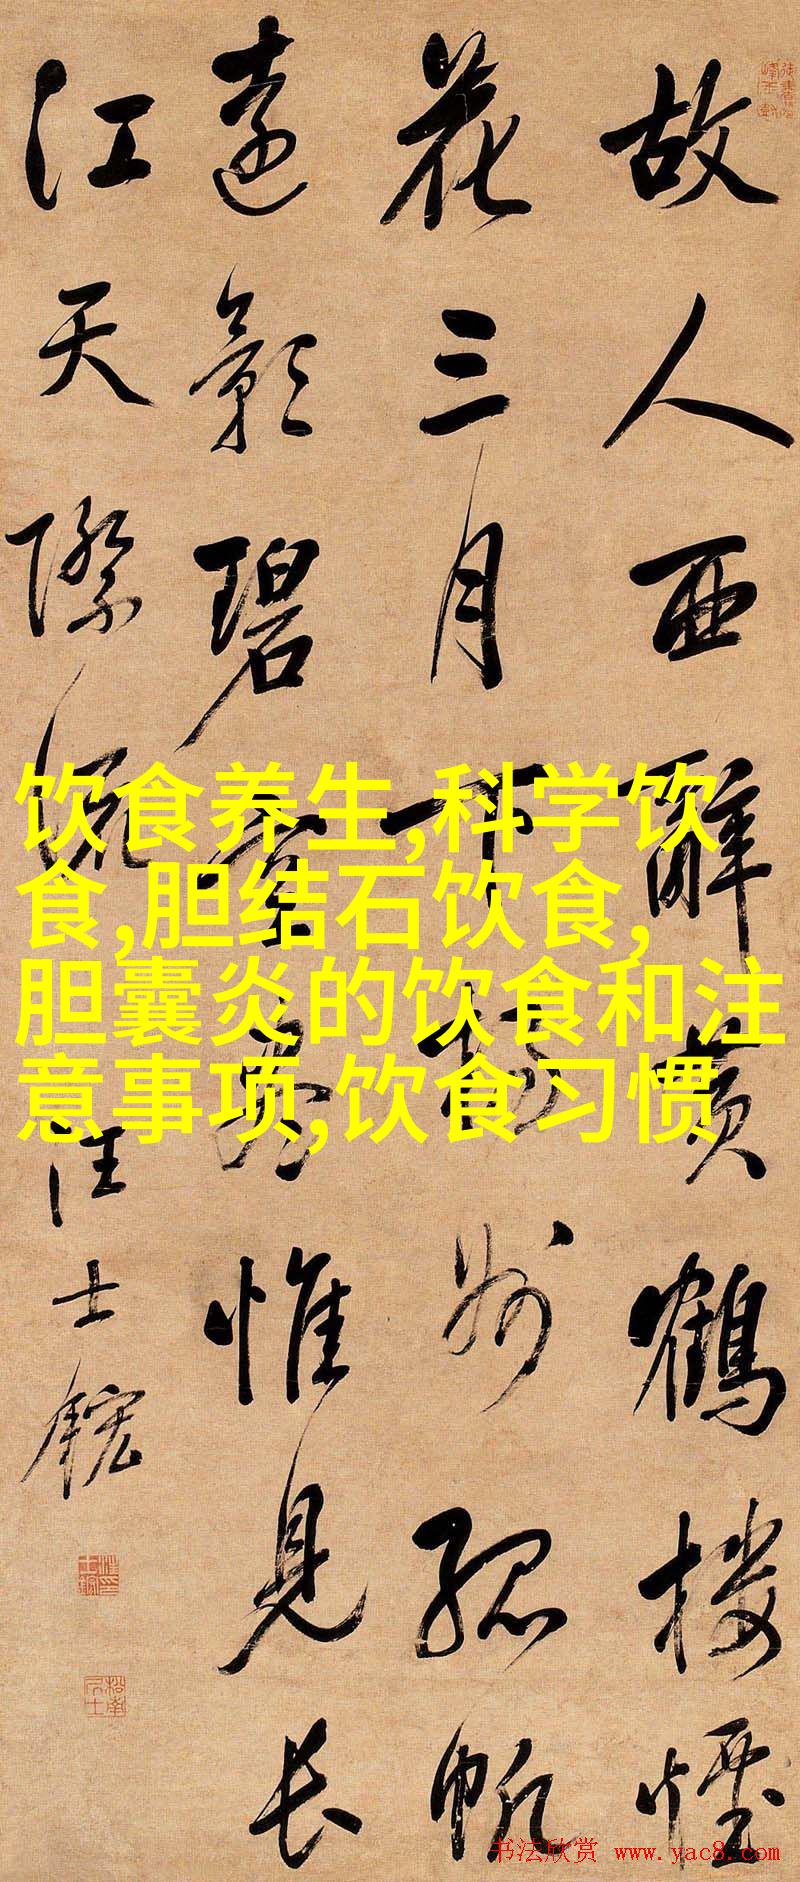 故人西辭黃鶴楼煙
花三月下揚州孤帆
遠影碧空盡惟見長
江天際流
汪士鋐
饮食养生,科学饮
食,胆结石饮食,
胆囊炎的饮食和注
意事项,饮食习惯
书法欣赏 www.yac8.com